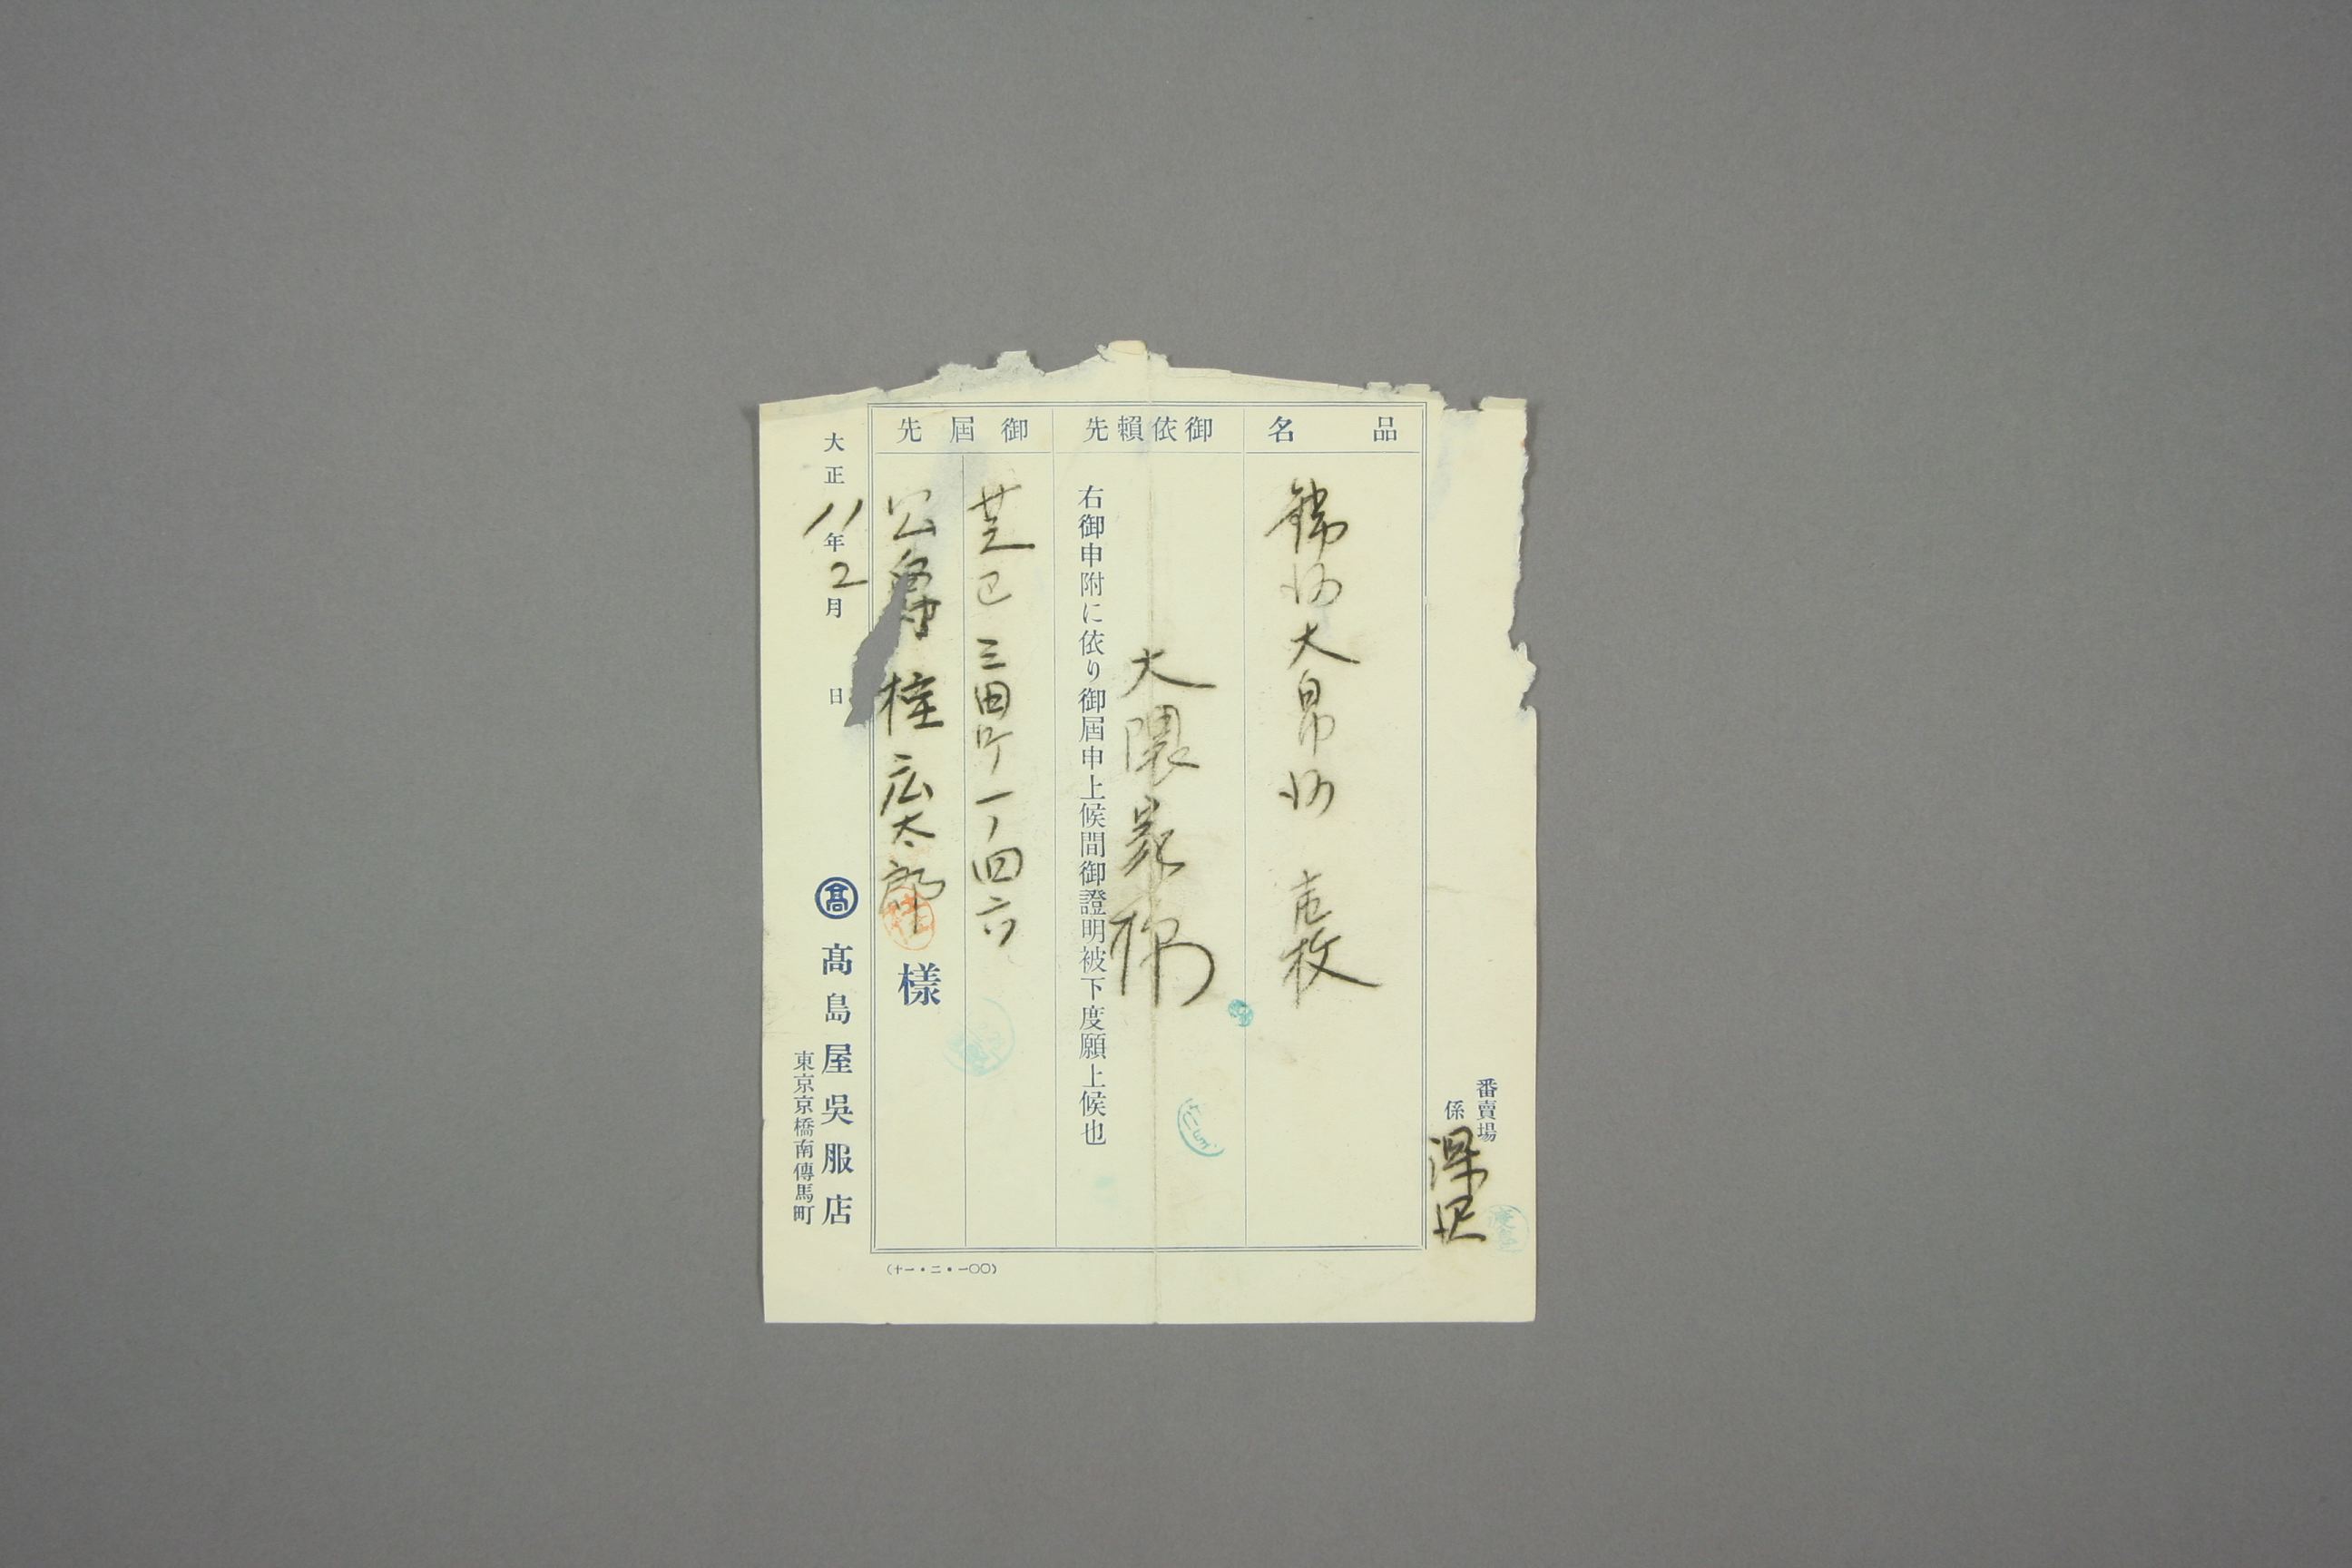 番賣場
係
品名
錦紗大帛紗 壱枚
御依賴先
大隈家様
右御申附に依り御屆申上候間御證明被下度願上候也
御屆先
芝区三田町一ノ四六
公爵 桂広太郎様
大正11年2月 日
髙 髙島屋吳服店
東京京橋南傳馬町
(十一・二・一〇〇)